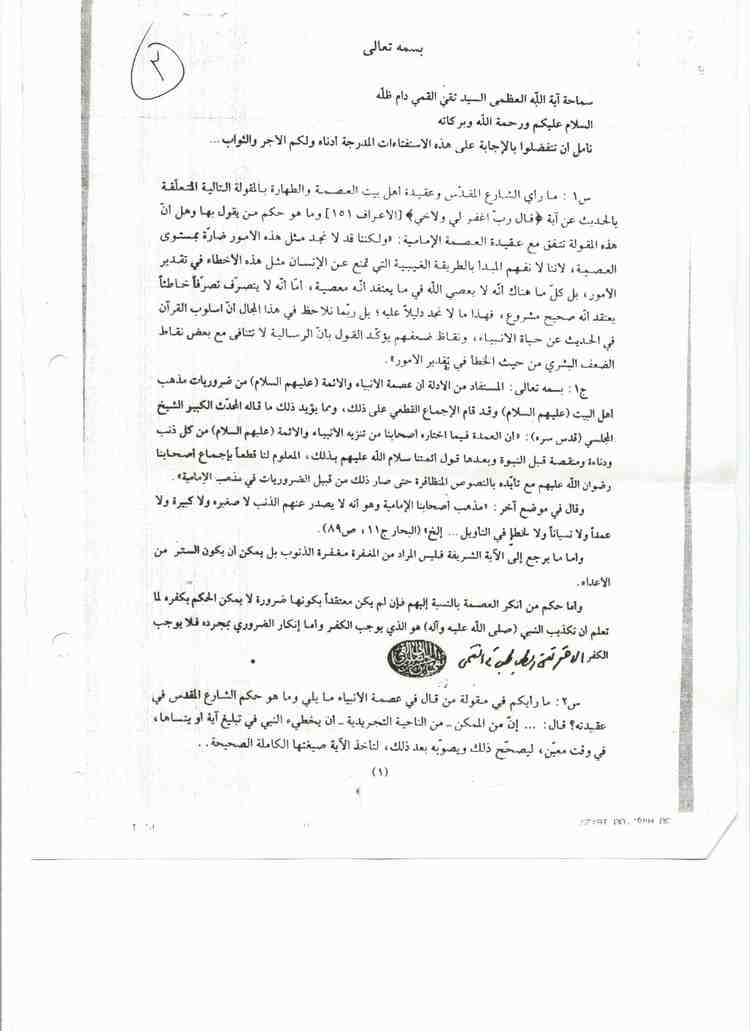 بسمه تعالى
٣
سماحة آية الله العظمى السيد تقي القمي دام ظله
السلام عليكم ورحمة الله وبركاته
نأمل أن تتفضلوا بالإجابة على هذه الاستفتاءات المدرجة أدناه ولكم الأجر والثواب...
س١ : ما رأي الشارع المقدّس وعقيدة أهل بيت العصمة والطهارة بالمقولة التالية المتعلّقة
بالحديث عن آية ﴿قال ربّ اغفر لي ولأخي﴾ [الأعراف ١٥١] وما هو حكم من يقول بها وهل أنّ
هذه المقولة تتفق مع عقيدة العصمة الإمامية: «ولكننا قد لا نجد مثل هذه الأمور ضارّة بمستوى
العصمة، لأننا لا نفهم المبدأ بالطريقة الغيبية التي تمنع عن الإنسان مثل هذه الأخطاء في تقدير
الأمور، بل كلّ ما هناك أنّه لا يعصي الله في ما يعتقد أنّه معصية، أمّا أنّه لا يتصرّف تصرّفاً خاطئاً
يعتقد أنّه صحيح مشروع، فهذا ما لا نجد دليلاً عليه؛ بل ربّما نلاحظ في هذا المجال أنّ أسلوب القرآن
في الحديث عن حياة الأنبياء، ونقاط ضعفهم يؤكّد القول بأنّ الرسالية لا تتنافى مع بعض نقاط
الضعف البشري من حيث الخطأ في تقدير الأمور».
ج١ : بسمه تعالى: المستفاد من الأدلة أن عصمة الأنبياء والأئمة (عليهم السلام) من ضروريات مذهب
أهل البيت (عليهم السلام) وقد قام الإجماع القطعي على ذلك، ومما يؤيد ذلك ما قاله المحدّث الكبير الشيخ
المجلسي (قدس سره): «أن العمدة فيما اختاره أصحابنا من تنزيه الأنبياء والأئمة (عليهم السلام) من كل ذنب
ودناءة ومنقصة قبل النبوة وبعدها قول أئمتنا سلام الله عليهم بذلك، المعلوم لنا قطعاً بإجماع أصحابنا
رضوان الله عليهم مع تأيّده بالنصوص المتظافرة حتى صار ذلك من قبيل الضروريات في مذهب الإمامية».
وقال في موضع آخر: «مذهب أصحابنا الإمامية وهو أنه لا يصدر عنهم الذنب لا صغيره ولا كبيرة ولا
عمداً ولا نسياناً ولا لخطإ في التأويل ... إلخ» (البحار ج١١، ص٨٩).
وأما ما يرجع إلى الآية الشريفة فليس المراد من المغفرة مغفرة الذنوب بل يمكن أن يكون الستر من
الأعداء.
وأما حكم من أنكر العصمة بالنسبة إليهم فإن لم يكن معتقداً بكونها ضرورة لا يمكن الحكم بكفره لما
تعلم أن تكذيب النبي (صلى الله عليه وآله) هو الذي يوجب الكفر وأما إنكار الضروري بمجرده فلا يوجب
الكفر الأحقر تقي الطباطبائي القمي
س٢: ما رأيكم في مقولة من قال في عصمة الأنبياء ما يلي وما هو حكم الشارع المقدس في
عقيدته؟ قال: ... إنّ من الممكن - من الناحية التجريدية - أن يخطيء النبي في تبليغ آية أو ينساها،
في وقت معيّن، ليصحّح ذلك ويصوّبه بعد ذلك، لتأخذ الآية صيغتها الكاملة الصحيحة..
(١)